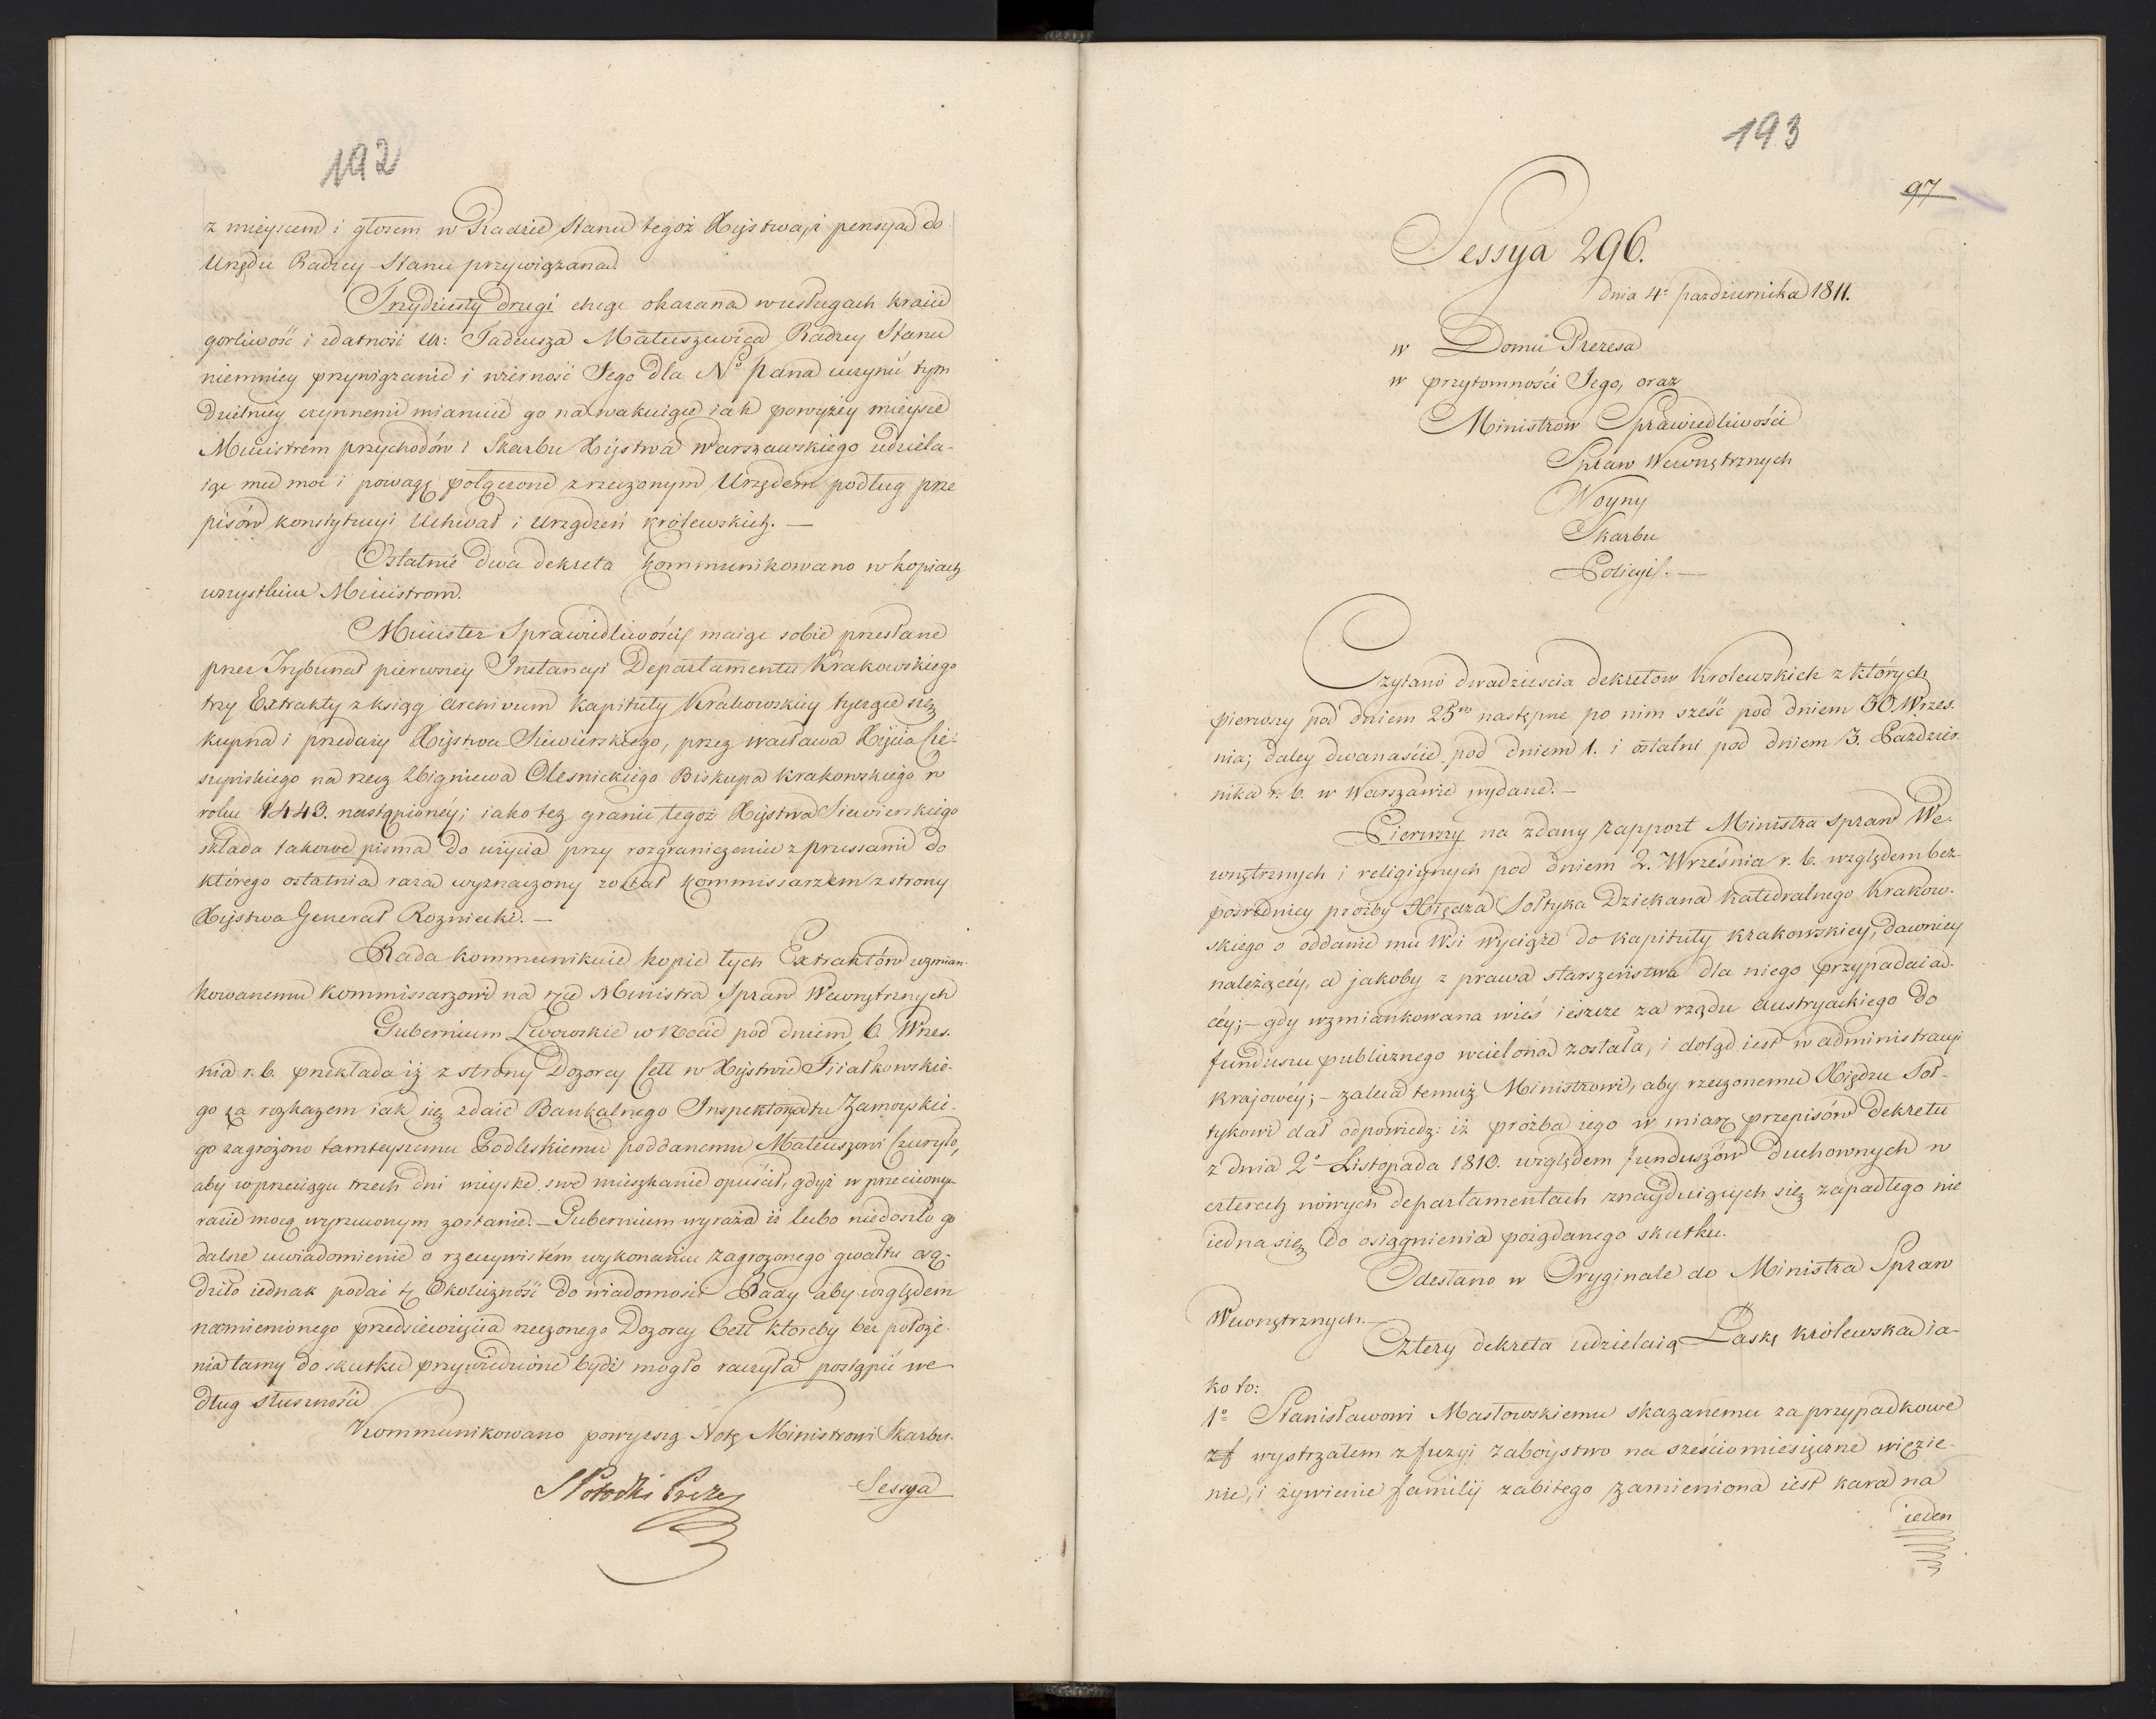 192
z mieyscem i głosem w Radzie Stanu tegoż Xięstwa, i pensyą do
Urzędu Radzcy Stanu przywiązaną.
Trzydziesty drugi chcąc okazaną w usługach kraiu
gorliwość i zdatność Ur: Tadeusza Matuszewica Radzcy Stanu
niemniey przywiązanie i wierność Jego dla Nº Pana uczynić tym
dzielniey czynnemi mianuie go na wakuiące iak powyżey mieysce
Ministrem przychodów i Skarbu Xięstwa Warszawskiego udziela-
iąc mu moc i powagę połączone z rzeczonym Urzędem podług prze
pisów konstytucyi Uchwał i Urządzeń królewskich. —
Ostatnie dwa dekreta kommunikowano w kopiach
wszystkim Ministrom.
Minister Sprawiedliwości maiąc sobie przesłane
przez Trybunał pierwszey Instancyi Departamentu Krakowskiego
trzy Extrakty z ksiąg Archivum Kapituły Krakowskiey tyczące się
kupna i przedaży Xięstwa Siewierskiego, przez Wacława Xięcia Cie-
szyńskiego na rzecz Zbigniewa Olesnickiego Biskupa Krakowskiego w
roku 1443. nastąpionéy; iako też granic tegoż Xięstwa Siewierskiego
składa takowe pisma do użycia przy rozgraniczeniu z prussami do
którego ostatnią razą wyznaczony został Kommissarzem z strony
Xięstwa Generał Rozniecki. —
Rada kommunikuie kopie tych Extraktów wzmian-
kowanemu Kommissarzowi na ręce Ministra Spraw Wewnętrznych
Gubernium Lwowskie w Nocie pod dniem 6. Wrześ.
nia r. b. przekłada iż z strony Dozorcy Cell w Xięstwie Fiiałkowskie-
go za rozkazem iak się zdaie Bankalnego Inspektoratu Zamoyskie-
go zagrożono tamteyszemu Podleskiemu poddanemu Mateuszowi Czuryło,
aby w przeciągu trzech dni mieyskie swe mieszkanie opuścił, gdyż w przeciwnym
razie mocą wyrzuconym zostanie. — Gubernium wyraża iż lubo niedoszło go
dalsze uwiadomienie o rzeczywistém wykonaniu zagrożonego gwałtu osą-
dziło iednak podać tę Okoliczność do wiadomości Rady aby względem
namienionego przedsiewzięcia rzeczonego Dozorcy Cell któreby bez położe-
nia tamy do skutku przywiedzione bydź mogło raczyła postąpić we
dług słuszności
Kommunikowano powyższą Notę Ministrowi Skarbu.
SPotocki Prezes
Sessya
193
97
Sessya 296.
dnia 4º pazdziernika 1811.
w Domu Prezesa
w przytomności Jego, oraz
Ministrów Sprawiedliwości
Spraw Wewnętrznych
Woyny
Skarbu
Policyi. —
Czytano dwadzieścia dekretów Krolewskich z których
pierwszy pod dniem 25º następne po nim sześć pod dniem 30 Wrześ.
nia; daley dwanaście pod dniem 1. i ostatni pod dniem 3. Paździer.
nika r. b. w Warszawie wydane. —
Pierwszy na zdany rapport Ministra spraw We-
wnętrznych i religiynych pod dniem 2. Września r. b. względem bez-
pośredniey prozby Xiędza Sołtyka Dziekana Katedralnego Krakow-
skiego o oddanie mu Wsi Wyciąże do kapituły krakowskiey, dawniey
należącéy, a jakoby z prawa starszeństwa dla niego przypadaiąd-
céy; — gdy wzmiankowana wieś ieszcze za rządu Austryackiego do
funduszu publicznego wcieloną została, i dotąd iest w administracyi
krajowéy; — zaleca temuż Ministrowi, aby rzeczonemu Xiędzu Soł-
tykowi dał odpowiedz: iż prozba iego w miarę przepisów dekretu
z dnia 2º Listopada 1810. względem funduszów duchownych w
czterech nowych departamentach znayduiących się zapadłego nie
iedna się do osiągnienia pożądanego skutku.
Odesłano w Oryginale do Ministra Spraw
Wewnętrznych.
Cztery dekreta udzielaią Łaskę królewską ia-
ko to:
1º Stanisławowi Masłowskiemu skazanemu za przypadkowe
wystrzałem z fuzyi zaboystwo na sześciomiesięczne więzie-
nie, i żywienie familij zabitego zamieniona iest kara na
ieden